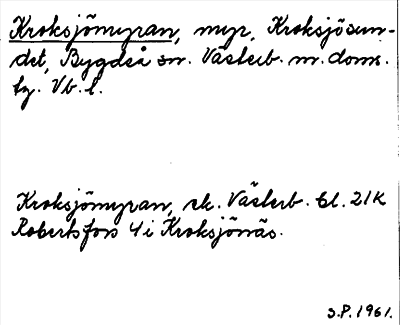 Kroksjömyran, myr, Kroksjösun-
det, Bygdeå sn. Västerb. m. doms.
tg. Vb. l.
Kroksjömyran, ek. Västerb. bl. 21K
Robertsfors 4 i Kroksjönäs.
S.P. 1961.